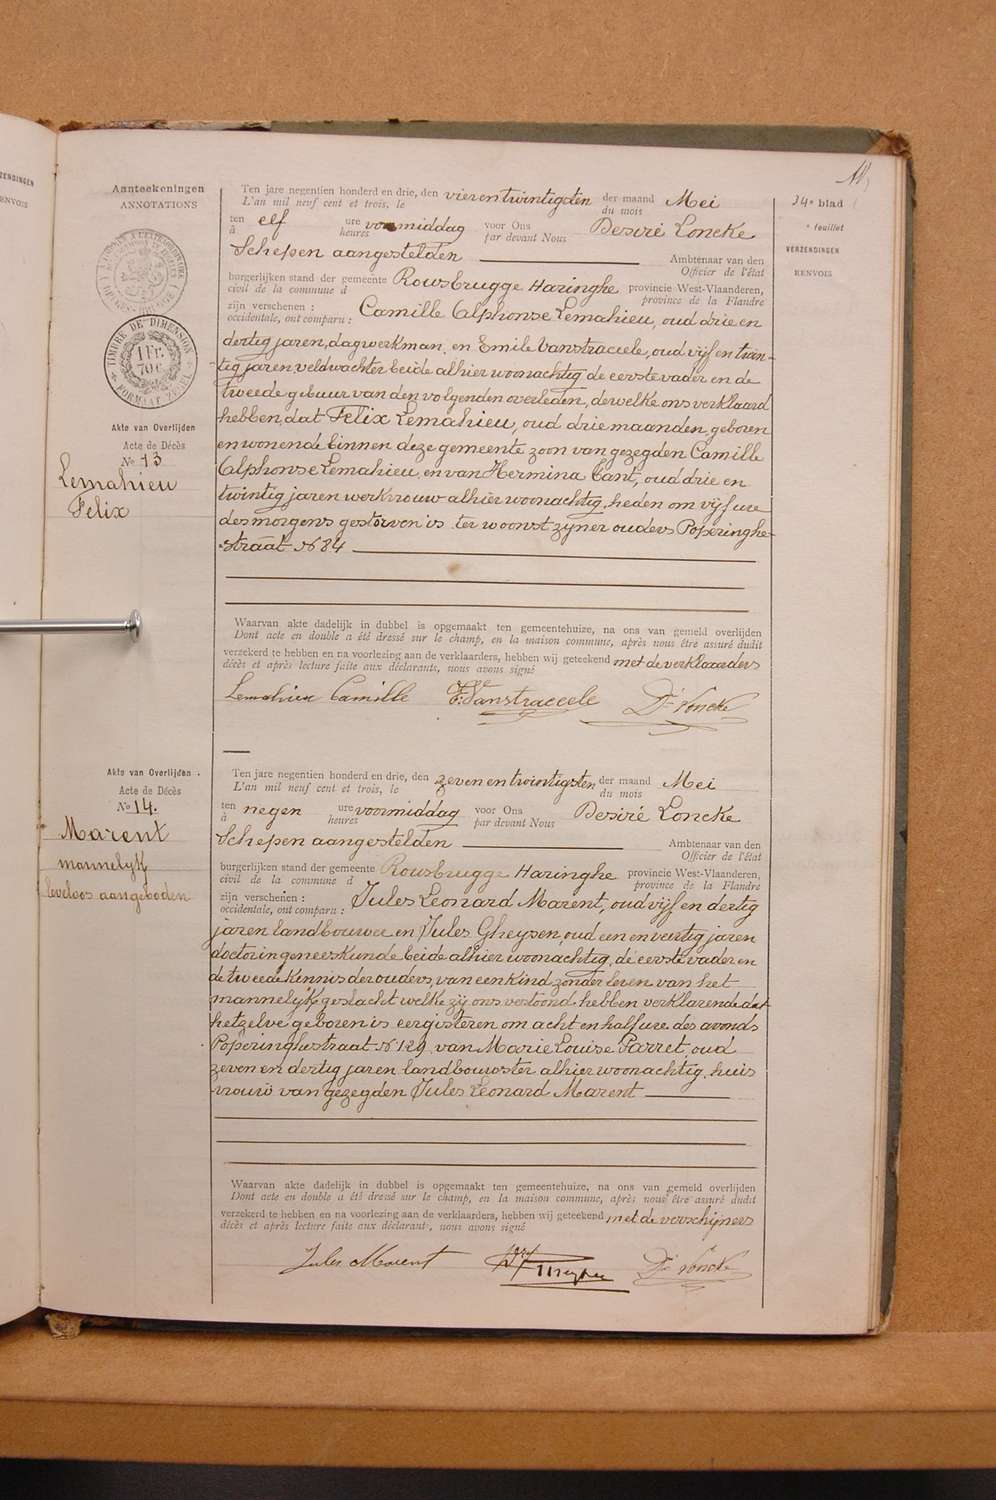 14e blad
e feuillet
VERZENDINGEN
RENVOIS
Aanteekeningen
ANNOTATIONS
TIMBRE DE DIMENSION
1 Fr. 70 C.
Akte van Overlijden
Acte de Décès
No 13
Lemahieu
Felix
Ten jare negentien honderd en drie, den vierentwintigsten der maand Mei
L'an mil neuf cent et trois, le du mois
ten elf ure voormiddag voor Ons Desiré Loncke
à heures par devant Nous
Schepen aangestelden Ambtenaar van den
Officier de l'état
burgerlijken stand der gemeente Rousbrugge Haringhe provincie West-Vlaanderen,
civil de la commune d province de la Flandre
zijn verschenen : Camille Alphonse Lemahieu, oud drie en
occidentale, ont comparu :
dertig jaren, dagwerkman, en Emile Vanstraceele, oud vijf en twin-
tig jaren, veldwachter beide alhier woonachtig de eerste vader en de
tweede gebuur van den volgenden overleden, dewelke ons verklaard
hebben, dat Felix Lemahieu, oud drie maanden, geboren
en wonende binnen deze gemeente zoon van gezegden Camille
Alphonse Lemahieu, en van Hermina Cant, oud drie en
twintig jaren werkvrouw alhier woonachtig, heden om vijf ure
des morgens gestorven is ter woonst zijner ouders Poperinghe
straat No 84
Waarvan akte dadelijk in dubbel is opgemaakt ten gemeentehuize, na ons van gemeld overlijden
Dont acte en double a été dressé sur le champ, en la maison commune, après nous être assuré dudit
verzekerd te hebben en na voorlezing aan de verklaarders, hebben wij geteekend met de verklaarders
décès et après lecture faite aux déclarants, nous avons signé
Lemahieu Camille E. Vanstraceele Dé Loncke
Akte van Overlijden
Acte de Décès
No 14.
Marent
mannelyk
levloos aangeboden
Ten jare negentien honderd en drie, den zeven en twintigsten der maand Mei
L'an mil neuf cent et trois, le du mois
ten negen ure voormiddag voor Ons Desiré Loncke
à heures par devant Nous
Schepen aangestelden Ambtenaar van den
Officier de l'état
burgerlijken stand der gemeente Rousbrugge Haringhe provincie West-Vlaanderen,
civil de la commune d province de la Flandre
zijn verschenen : Jules Leonard Marent, oud vijf en dertig
occidentale, ont comparu :
jaren landbouwer en Jules Gheysen, oud een en veertig jaren
doctor in geneeskunde beide alhier woonachtig, de eerste vader en
de tweede kennis der ouders, van een kind zonder leven van het
mannelijk geslacht welke zij ons vertoond hebben verklarende dat
hetzelve geboren is eergisteren om acht en half ure des avonds
Poperinghestraat No 129 van Marie Louise Parret, oud
zeven en dertig jaren landbouwster alhier woonachtig, huis
vrouw van gezegden Jules Leonard Marent
Waarvan akte dadelijk in dubbel is opgemaakt ten gemeentehuize, na ons van gemeld overlijden
Dont acte en double a été dressé sur le champ, en la maison commune, après nous être assuré dudit
verzekerd te hebben en na voorlezing aan de verklaarders, hebben wij geteekend met de verschijners
décès et après lecture faite aux déclarant, nous avons signé
Jules Marent Dé Loncke